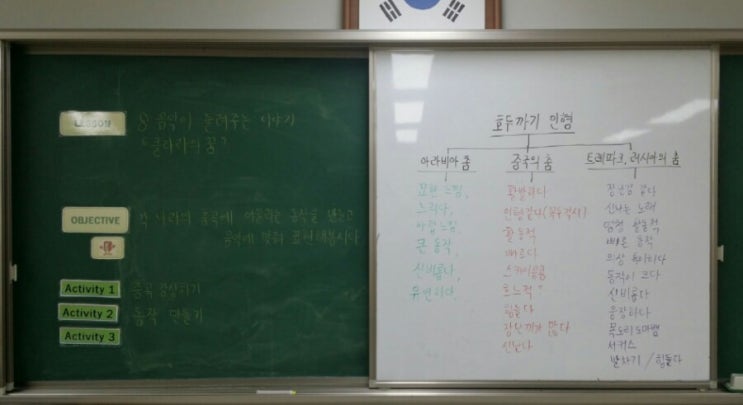 Lesson
8. 음악이 들려주는 이야기
"클라라의 꿈"
OBJECTIVE
각 나라의 춤곡에 어울리는 동작을 만들고
음악에 맞춰 표현해봅시다
Activity 1 춤곡 감상하기
Activity 2 동작 만들기
Activity 3
호두까기 인형
아라비아 춤
묘한 느낌,
느리다,
아랍 느낌,
큰 동작,
신비롭다,
유연하다.
중국의 춤
활발하다
인형같다(꼭두각시)
활동적
빠르다
흐느적
힘들다
장난끼가 많다
신난다
트레파크, 러시아의 춤
장난감 같다
신나는 노래
활동적
빠른 동작
의상 특이하다
동작이 크다
신비롭다
웅장하다
목도리도마뱀
서커스
발차기 / 힘들다